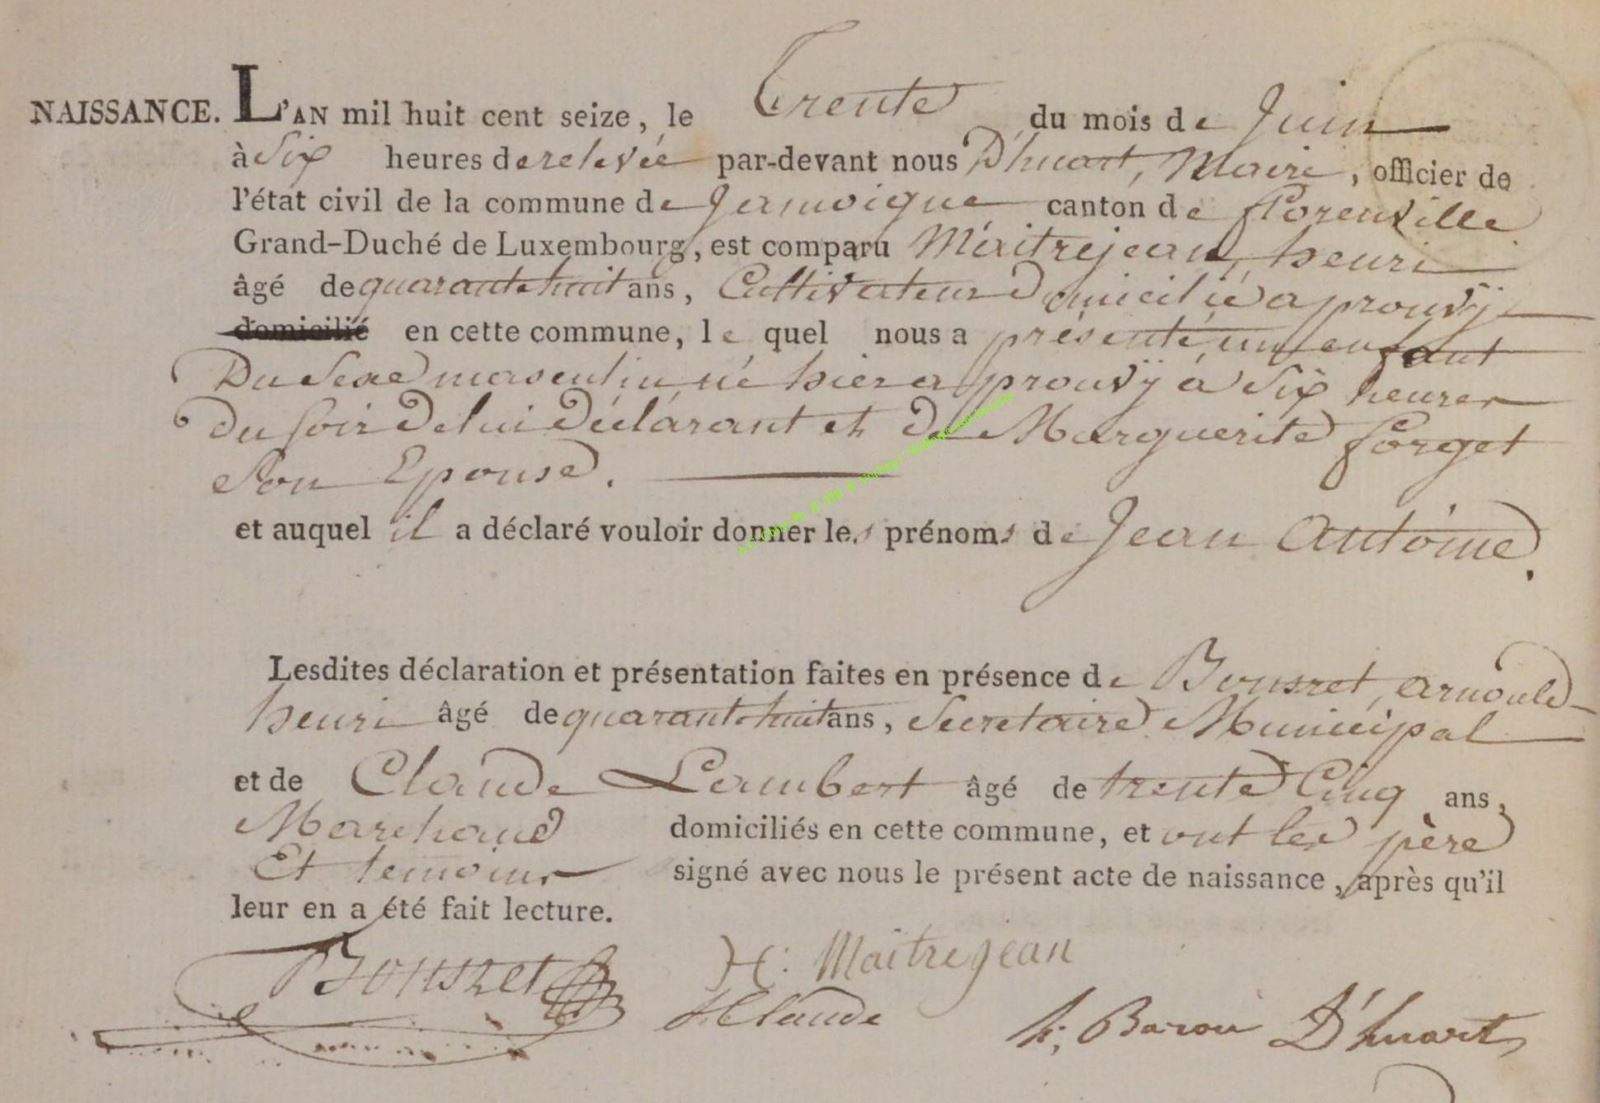 NAISSANCE. L'AN mil huit cent seize, le Trente du mois de Juin
à Six heures de relevée par-devant nous D'huart, Maire, officier de
l'état civil de la commune de Jamoigne canton de florenville
Grand-Duché de Luxembourg, est comparu Maitrejean, henri
âgé de quarante huit ans, Cultivateur Domicilié a prouvÿ
domicilié en cette commune, le quel nous a présenté un enfant
Du Sexe masculin né hier a prouvÿ a Six heures
Du Soir De lui Déclarant et De Marguerite forget
Son Epouse.
et auquel il a déclaré vouloir donner les prénoms de Jean Antoine.
Lesdites déclaration et présentation faites en présence de Bonsret, arnould
henri âgé de quarante huit ans, Secretaire Municipal
et de Claude Lambert âgé de trente Cinq ans,
Marchand domiciliés en cette commune, et ont les père
Et temoins signé avec nous le présent acte de naissance, après qu'il
leur en a été fait lecture.
Bonsret H: Maitrejean
L: Claude h: Baron D'huart